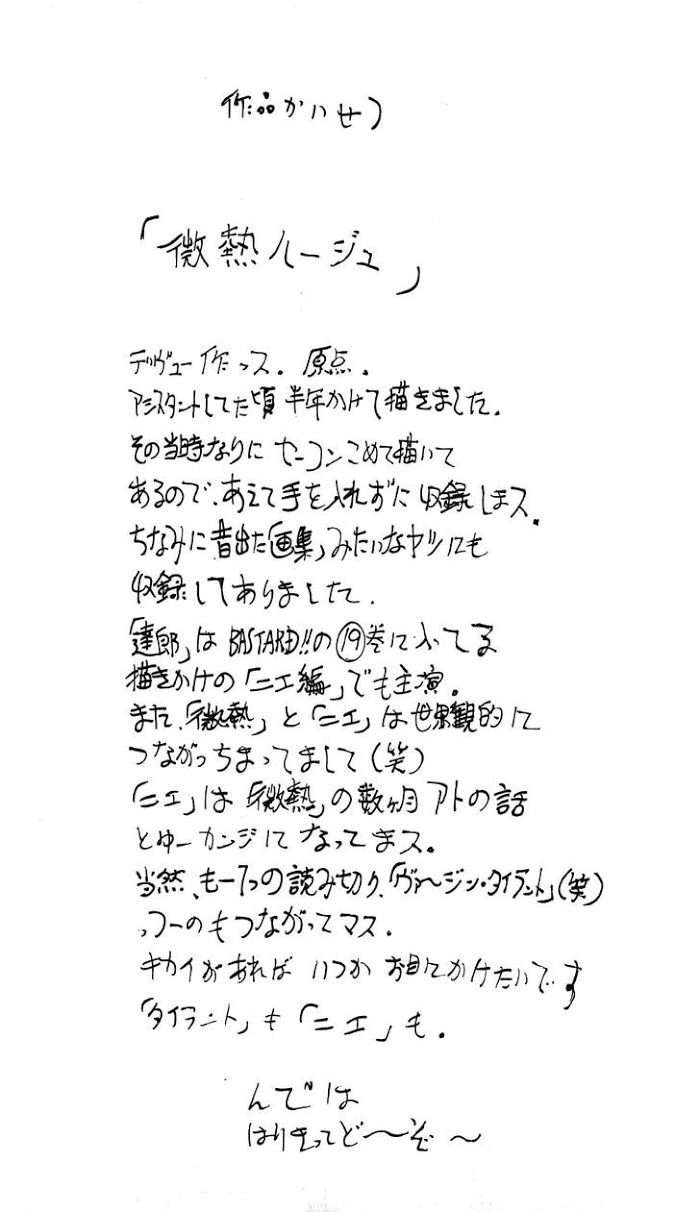 作品かいせつ
「微熱ルージュ」
デヴュー作っス．原点．
アシスタントしてた頃半年かけて描きました．
その当時なりにセーコンこめて描いて
あるので、あえて手を入れずに収録しまス．
ちなみに昔出た「画集」みたいなヤツにも
収録してありました．
「達郎」はBASTARD!!の⑲巻に入ってる
描きかけの「ニエ編」でも主演．
また、「微熱」と「ニエ」は世界観的に
つながっちまってまして（笑）
「ニエ」は「微熱」の数ヶ月アトの話
とゆーカンジになってまス．
当然、もー1つの読み切り、「ヴァージン・タイラント」（笑）
っつーのもつながってマス．
キカイがあればいつかお目にかけたいです
「タイラント」も「ニエ」も．
んでは
はりきってど〜ぞ〜